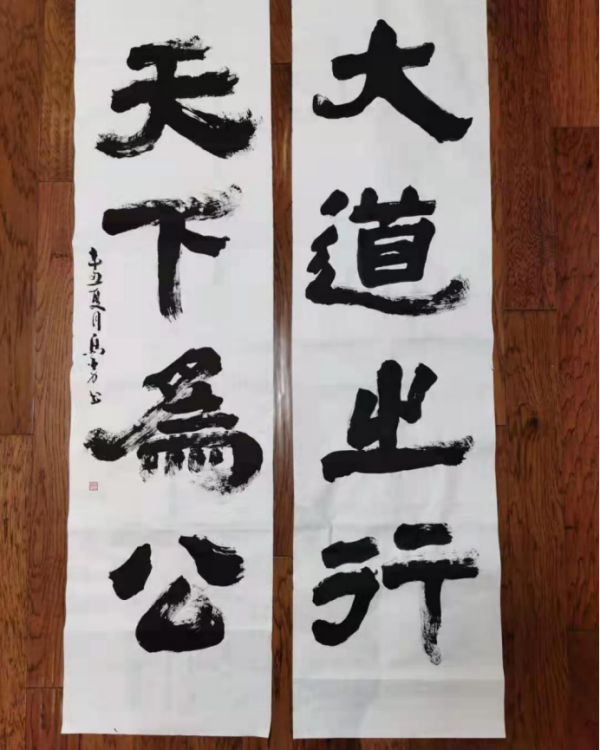 大道之行
天下為公
辛丑夏月